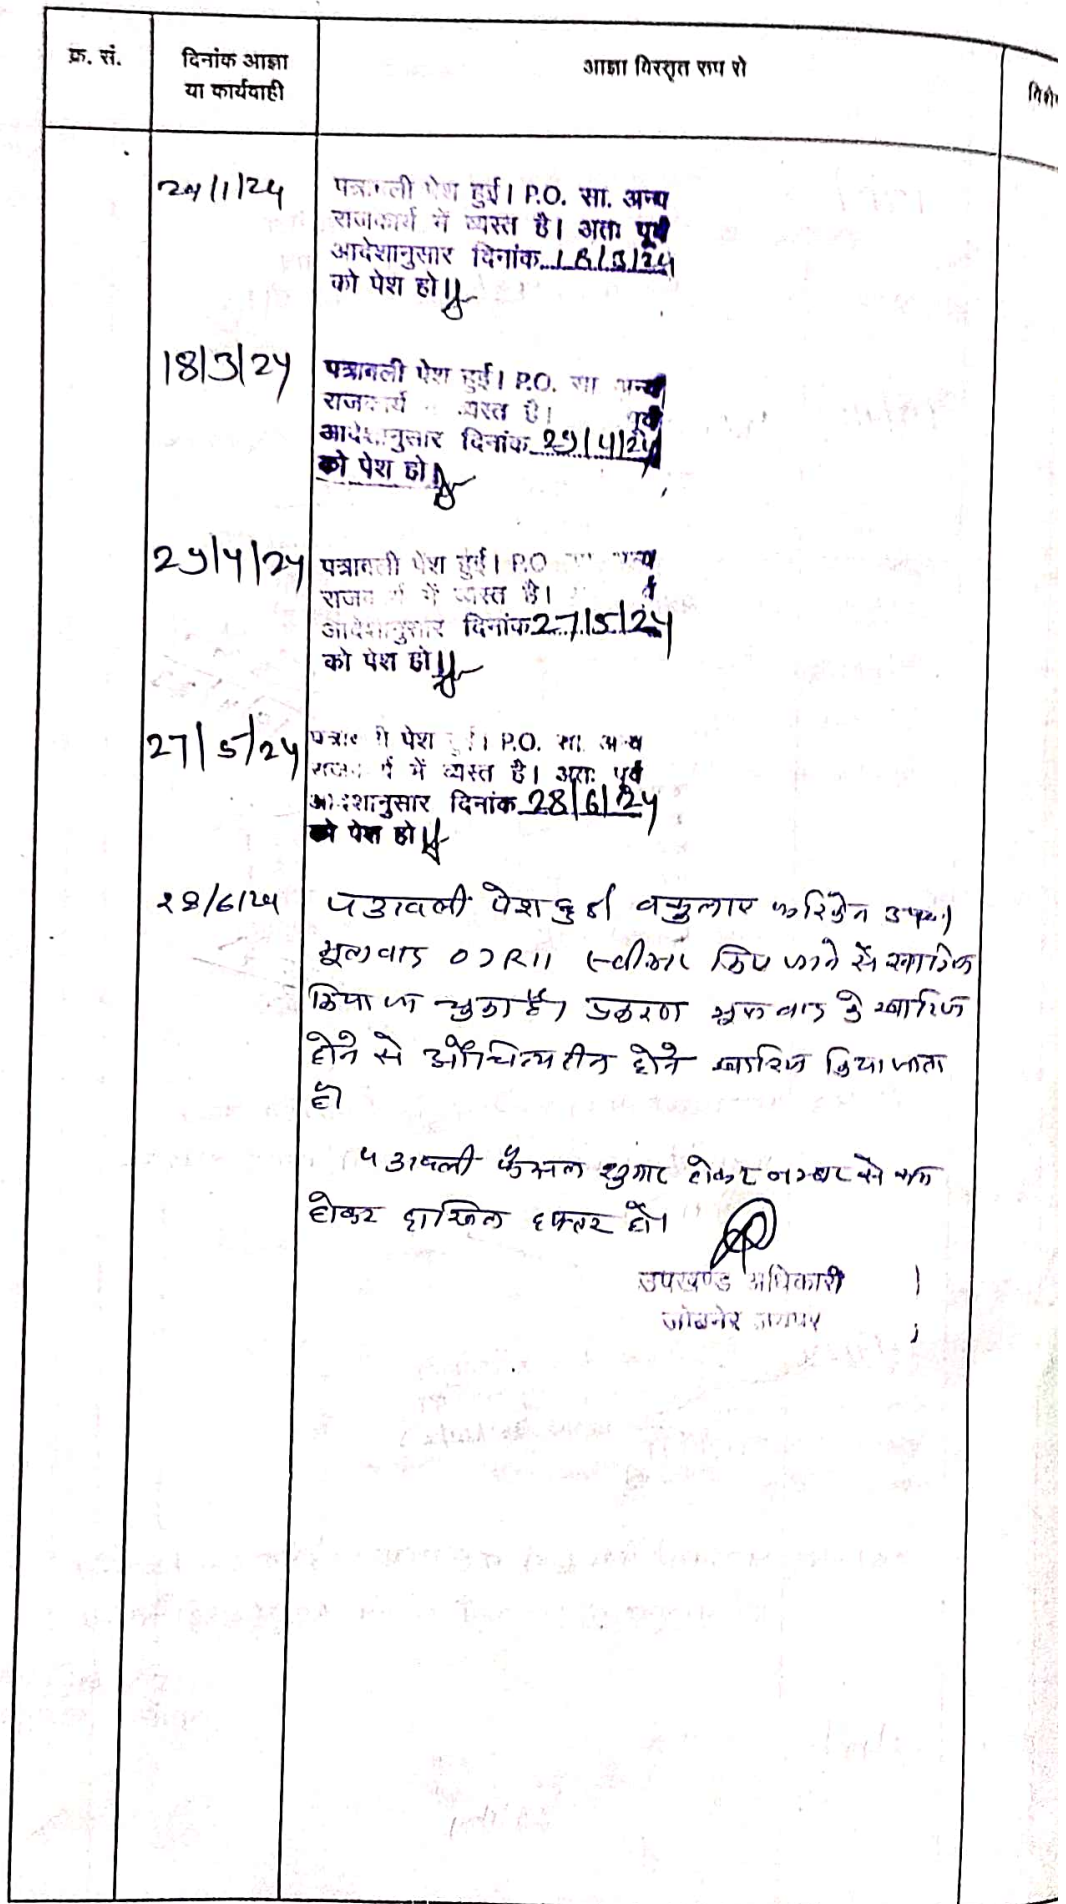 क्र. सं.
दिनांक आज्ञा
या कार्यवाही
आज्ञा विस्तृत रूप से
24/1/24
पत्रावली पेश हुई। P.O. सा. अन्य
राजकार्य में व्यस्त है। अतः पूर्व
आदेशानुसार दिनांक 18/3/24
को पेश हो।
18/3/24
पत्रावली पेश हुई। P.O. सा अन्य
राजकार्य व्यस्त है। पूर्व
आदेशानुसार दिनांक 29/4/24
को पेश हो।
29/4/24
पत्रावली पेश हुई। P.O अन्य
राजकार्य में व्यस्त है।
आदेशानुसार दिनांक 27/5/24
को पेश हो।
27/5/24
पत्रावली पेश हुई। P.O. सा. अन्य
राजकार्य में व्यस्त है। अतः पूर्व
आदेशानुसार दिनांक 28/6/24
को पेश हो।
28/6/24
पत्रावली पेश हुई। वकुलाए फरिकेन उप०।
मूलवाद O7R11 स्वीकार किए जाने से खारिज
किया जा चुका है। प्रकरण मूल वाद के खारिज
होने से औचित्यहीन होने खारिज किया जाता
है।
पत्रावली फैसल शुमार होकर नम्बर से कम
होकर दाखिल दफ्तर हो।
उपखण्ड अधिकारी
जोबनेर जयपुर